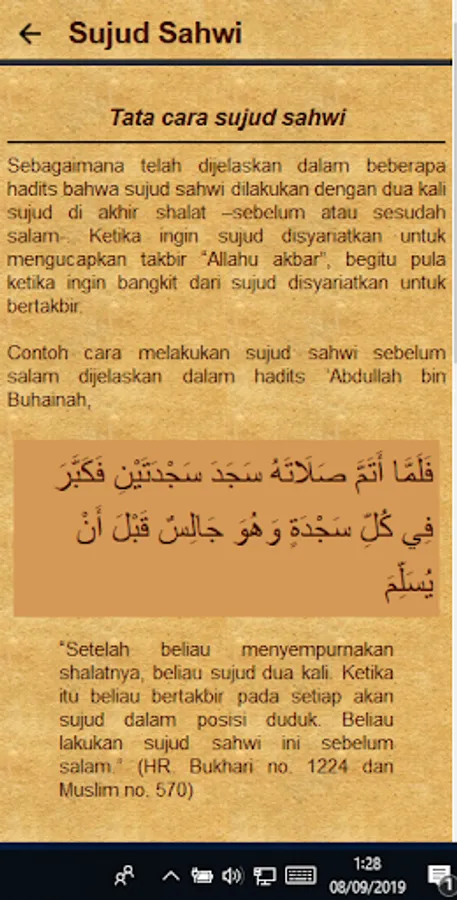 ← Sujud Sahwi
Tata cara sujud sahwi
Sebagaimana telah dijelaskan dalam beberapa
hadits bahwa sujud sahwi dilakukan dengan dua kali
sujud di akhir shalat –sebelum atau sesudah
salam-. Ketika ingin sujud disyariatkan untuk
mengucapkan takbir “Allahu akbar”, begitu pula
ketika ingin bangkit dari sujud disyariatkan untuk
bertakbir.
Contoh cara melakukan sujud sahwi sebelum
salam dijelaskan dalam hadits 'Abdullah bin
Buhainah,
فَلَمَّا أَتَمَّ صَلَاتَهُ سَجَدَ سَجْدَتَيْنِ فَكَبَّرَ
فِي كُلِّ سَجْدَةٍ وَهُوَ جَالِسٌ قَبْلَ أَنْ
يُسَلِّمَ
“Setelah beliau menyempurnakan
shalatnya, beliau sujud dua kali. Ketika
itu beliau bertakbir pada setiap akan
sujud dalam posisi duduk. Beliau
lakukan sujud sahwi ini sebelum
salam.” (HR. Bukhari no. 1224 dan
Muslim no. 570)
1:28
08/09/2019
1